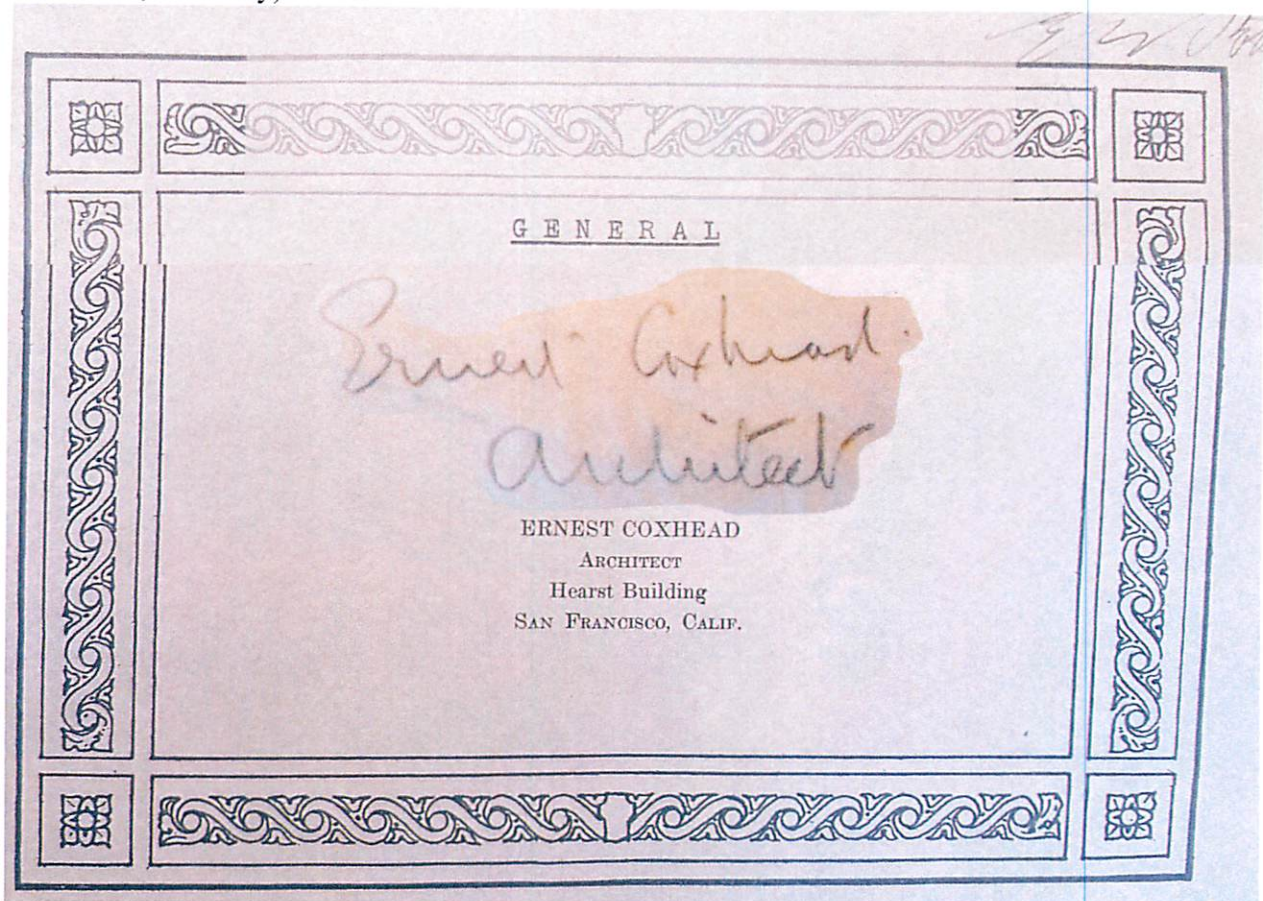 GENERAL
Ernest Coxhead.
Architect
ERNEST COXHEAD
ARCHITECT
Hearst Building
SAN FRANCISCO, CALIF.